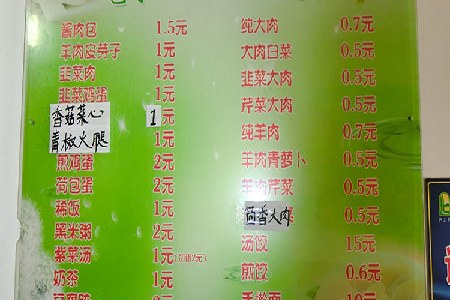 酱肉包 1.5元
羊肉皮芽子 1元
韭菜肉 1元
韭菜鸡蛋 1元
香菇菜心 1
青椒火腿 1元
煎鸡蛋 2元
荷包蛋 2元
稀饭 1元
黑米粥 2元
紫菜汤 1元(加蛋2元)
奶茶 1元
纯大肉 0.7元
大肉白菜 0.5元
韭菜大肉 0.5元
芹菜大肉 0.5元
纯羊肉 0.7元
羊肉青萝卜 0.5元
羊肉芹菜 0.5元
茴香大肉 0.5元
汤饺 15元
煎饺 0.6元